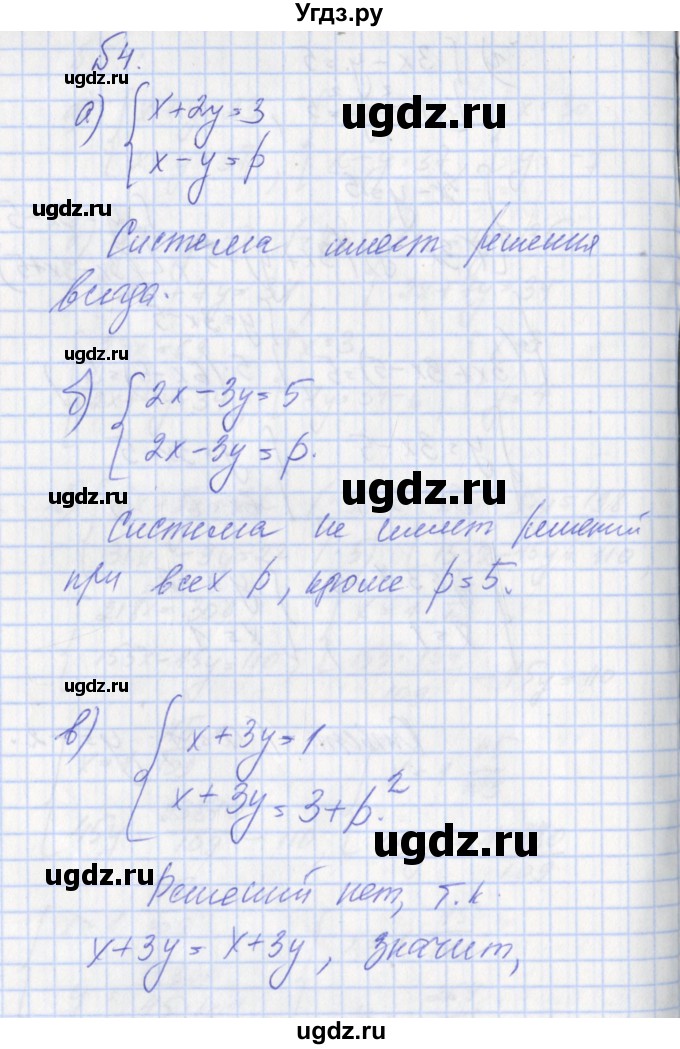 Угдз.ру
54.
ugdz.ru
а) { x+2y=3
x-y=p
ugdz.ru
ugdz.ru
Система имеет решения
всегда.
ugdz.ru
б) { 2x-3y=5
2x-3y=p.
ugdz.ru
ugdz.ru
Система не имеет решений
при всех p, кроме p=5.
ugdz.ru
в) { x+3y=1.
x+3y=3+p.²
ugdz.ru
ugdz.ru
Решений нет, т.к.
x+3y=x+3y, значит,
ugdz.ru